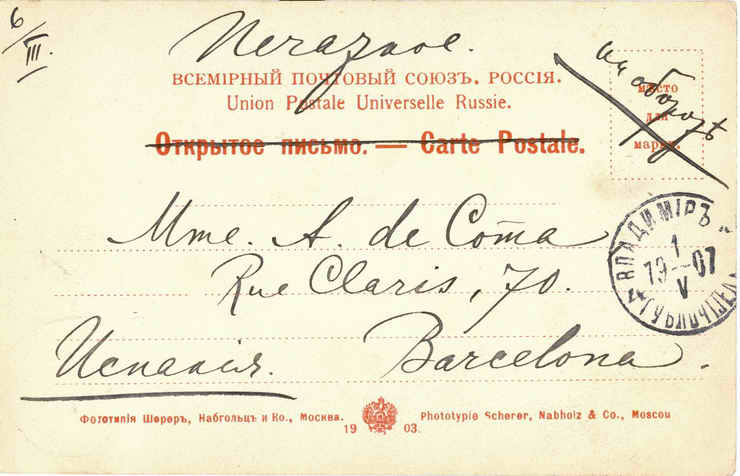 6/III.
Печатное.
на оборотѣ
ВСЕМІРНЫЙ ПОЧТОВЫЙ СОЮЗЪ. РОССІЯ.
Union Postale Universelle Russie.
мѣсто
для
марки.
Открытое письмо. — Carte Postale.
Mme. A. de Coma
Rue Claris, 70.
Испанія. Barcelona.
ВЛАДИМІРЪ
1
19--07
V
Фототипія Шереръ, Набгольцъ и Ко., Москва.
Phototypie Scherer, Nabholz & Co., Moscou
19 03.